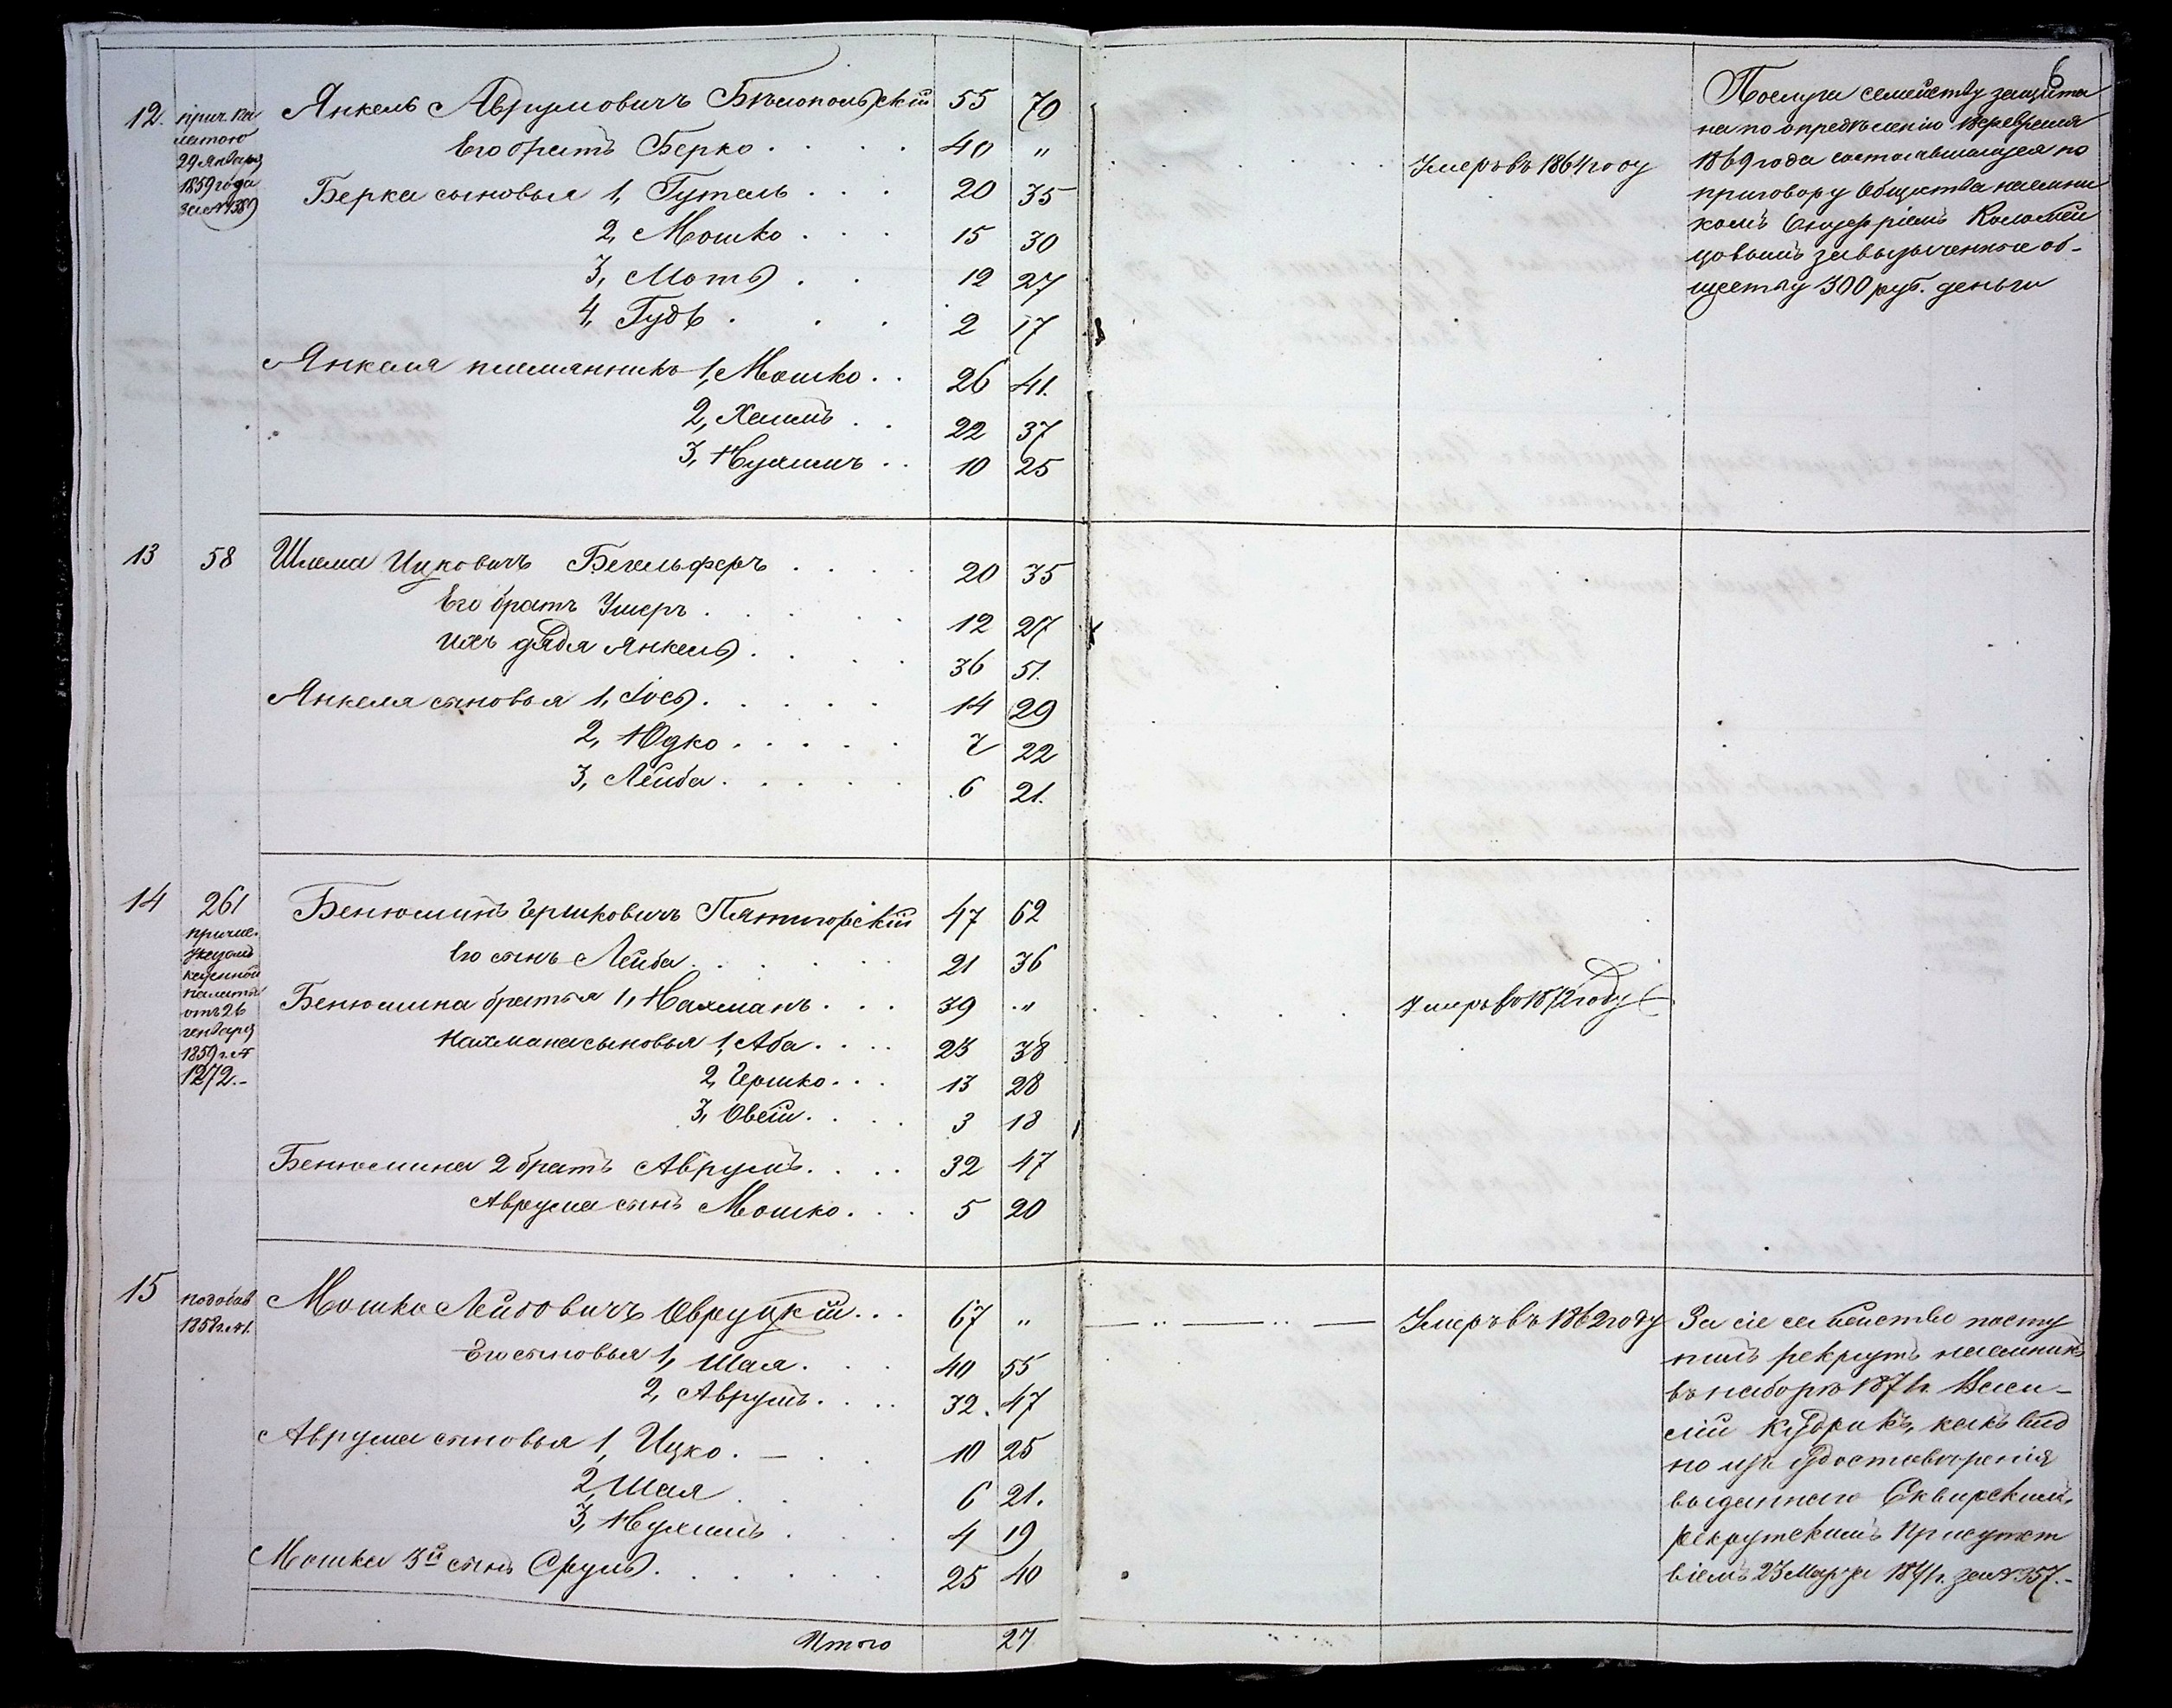 6
12. прич. Ка Янкель Аврумовичъ Бѣлопольскій 55 70
латою Его братъ Берко . . . . 40 "  Умеръ въ 1864 году
29 Января
1859 года Берка сыновья 1, Гутель . . . 20 35
за № 389
2, Мошко . . . 15 30
3, Моть . . 12 27
4, Гудь . . . 2 17
Янкеля племянникъ 1, Мошко . . 26 41.
2, Хаимъ . . 22 37
3, Нухимъ . . 10 25
Послуга семейству защита
на по опредѣленію
1869 года состоявшагося по
приговору Общества наемни
комъ Онуфріемъ Коломій
цовымъ за выданные об-
ществу 300 руб. деньги
13 58 Шлема Ицковичъ Бегельферъ . . . . 20 35
Его братъ Ушеръ . . . . . 12 27
Ихъ дядя Янкель . . . . 36 51.
Янкеля сыновья 1, Іось . . . . . 14 29
2, Юдко . . . . . 7 22
3, Лейба . . . . . 6 21.
14 261 Бенюминъ Гершковичъ Пятигорскій 47 62
причис.
указомъ Его сынъ Лейба . . . . . . 21 36
казенной
палаты Бенюмина братья 1, Нахманъ . . . 39 " . . . . . Умеръ въ 1872 году
отъ 26
генваря Нахмана сыновья 1, Аба . . . . 23 38
1859 г. №
1272.- 2, Гершко . . . 13 28
3, Овсій . . . . 3 18
Бенюмина 2 братъ Аврумъ . . . . 32 47
Аврума сынъ Мошко . . . 5 20
15 по добав Мошко Лейбовичъ Овруцкій . . . 67 " — .. — .. — Умеръ въ 1862 году
1858 г. № 1.
Его сыновья 1, Шая . . . 40 55
2, Аврумъ . . . . 32. 47
Аврума сыновья 1, Ицко . — . . 10 25
2, Шая . . . 6 21.
3, Нухимъ . . . 4 19
Мошка 3й сынъ Сруль . . . . . . 25 40
За сіе семейство посту
пилъ рекрутъ наемникъ
въ наборъ 1871 г. Васи-
лій Кудрикъ, какъ вид
но изъ удостоверенія
выданнаго Сквирскимъ
рекрутскимъ присутст
віемъ 23 Марта 1871 г. за № 357.-
Итого 27